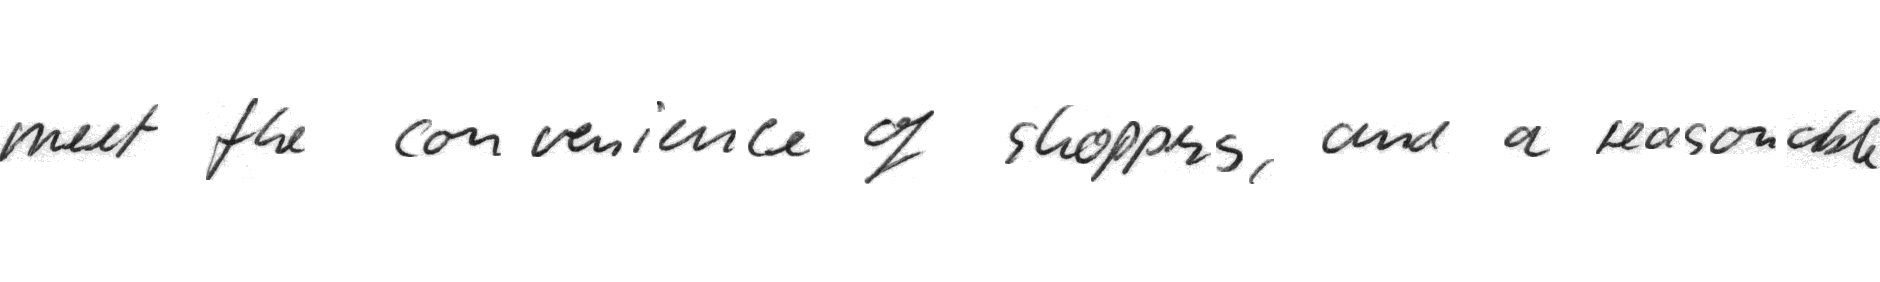 meet the convenience of shoppers, and a reasonable